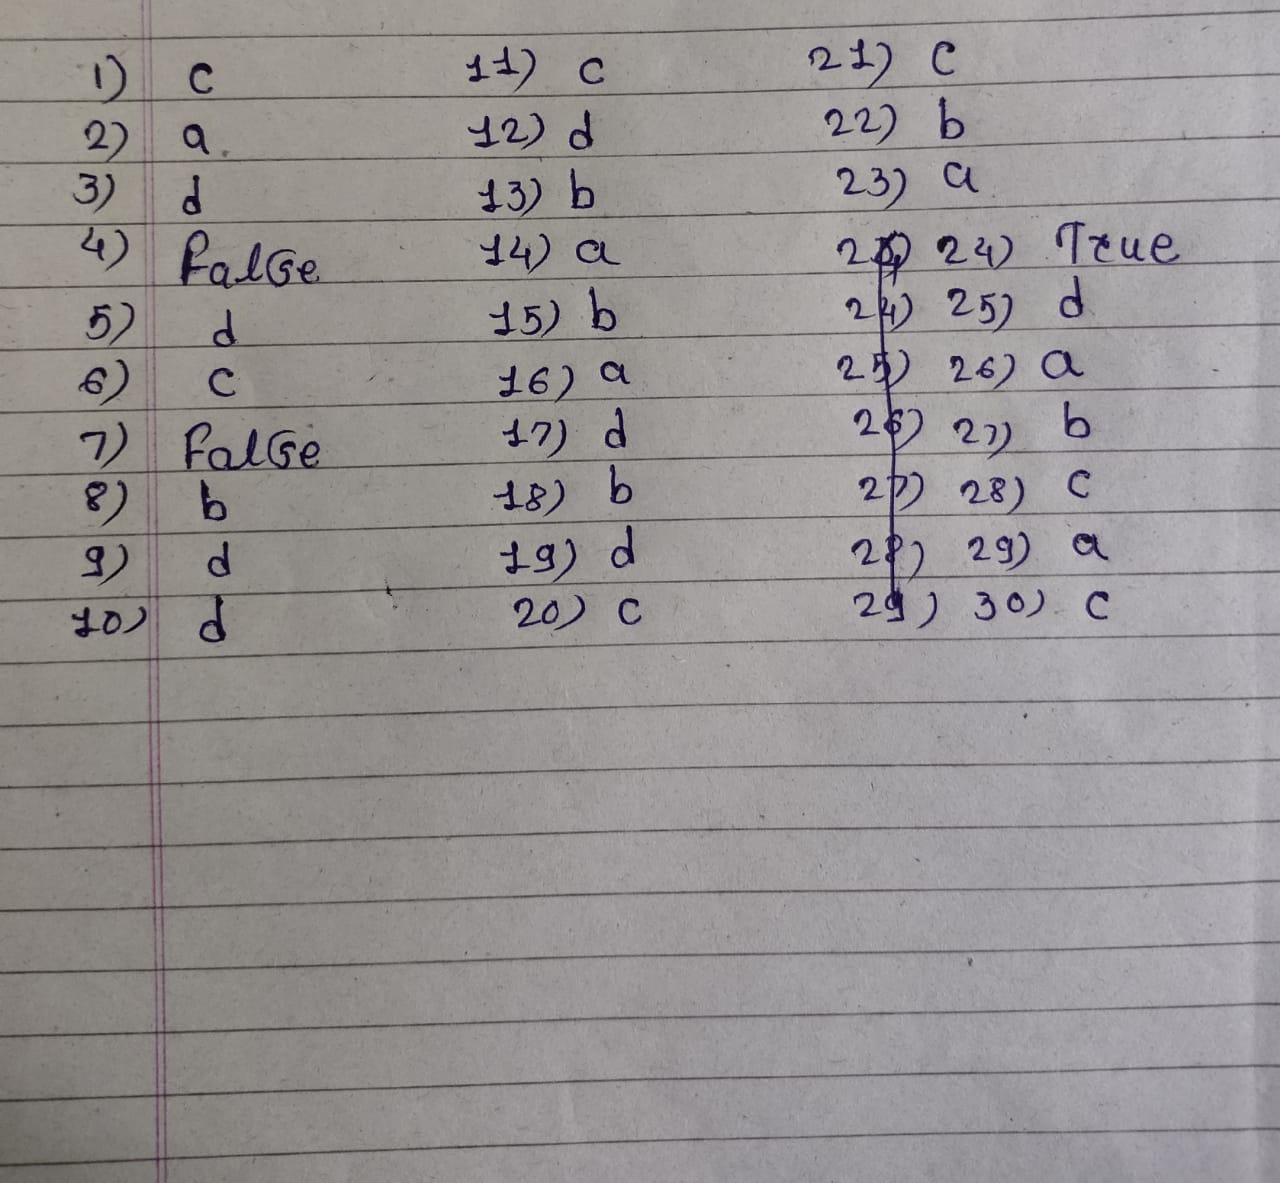 1) c
2) a.
3) d
4) false
5) d
6) c
7) false
8) b
9) d
10) d
11) c
12) d
13) b
14) a
15) b
16) a
17) d
18) b
19) d
20) c
21) c
22) b
23) a
24) True
24) 25) d
25) 26) a
26) 27) b
27) 28) c
28) 29) a
29) 30) c